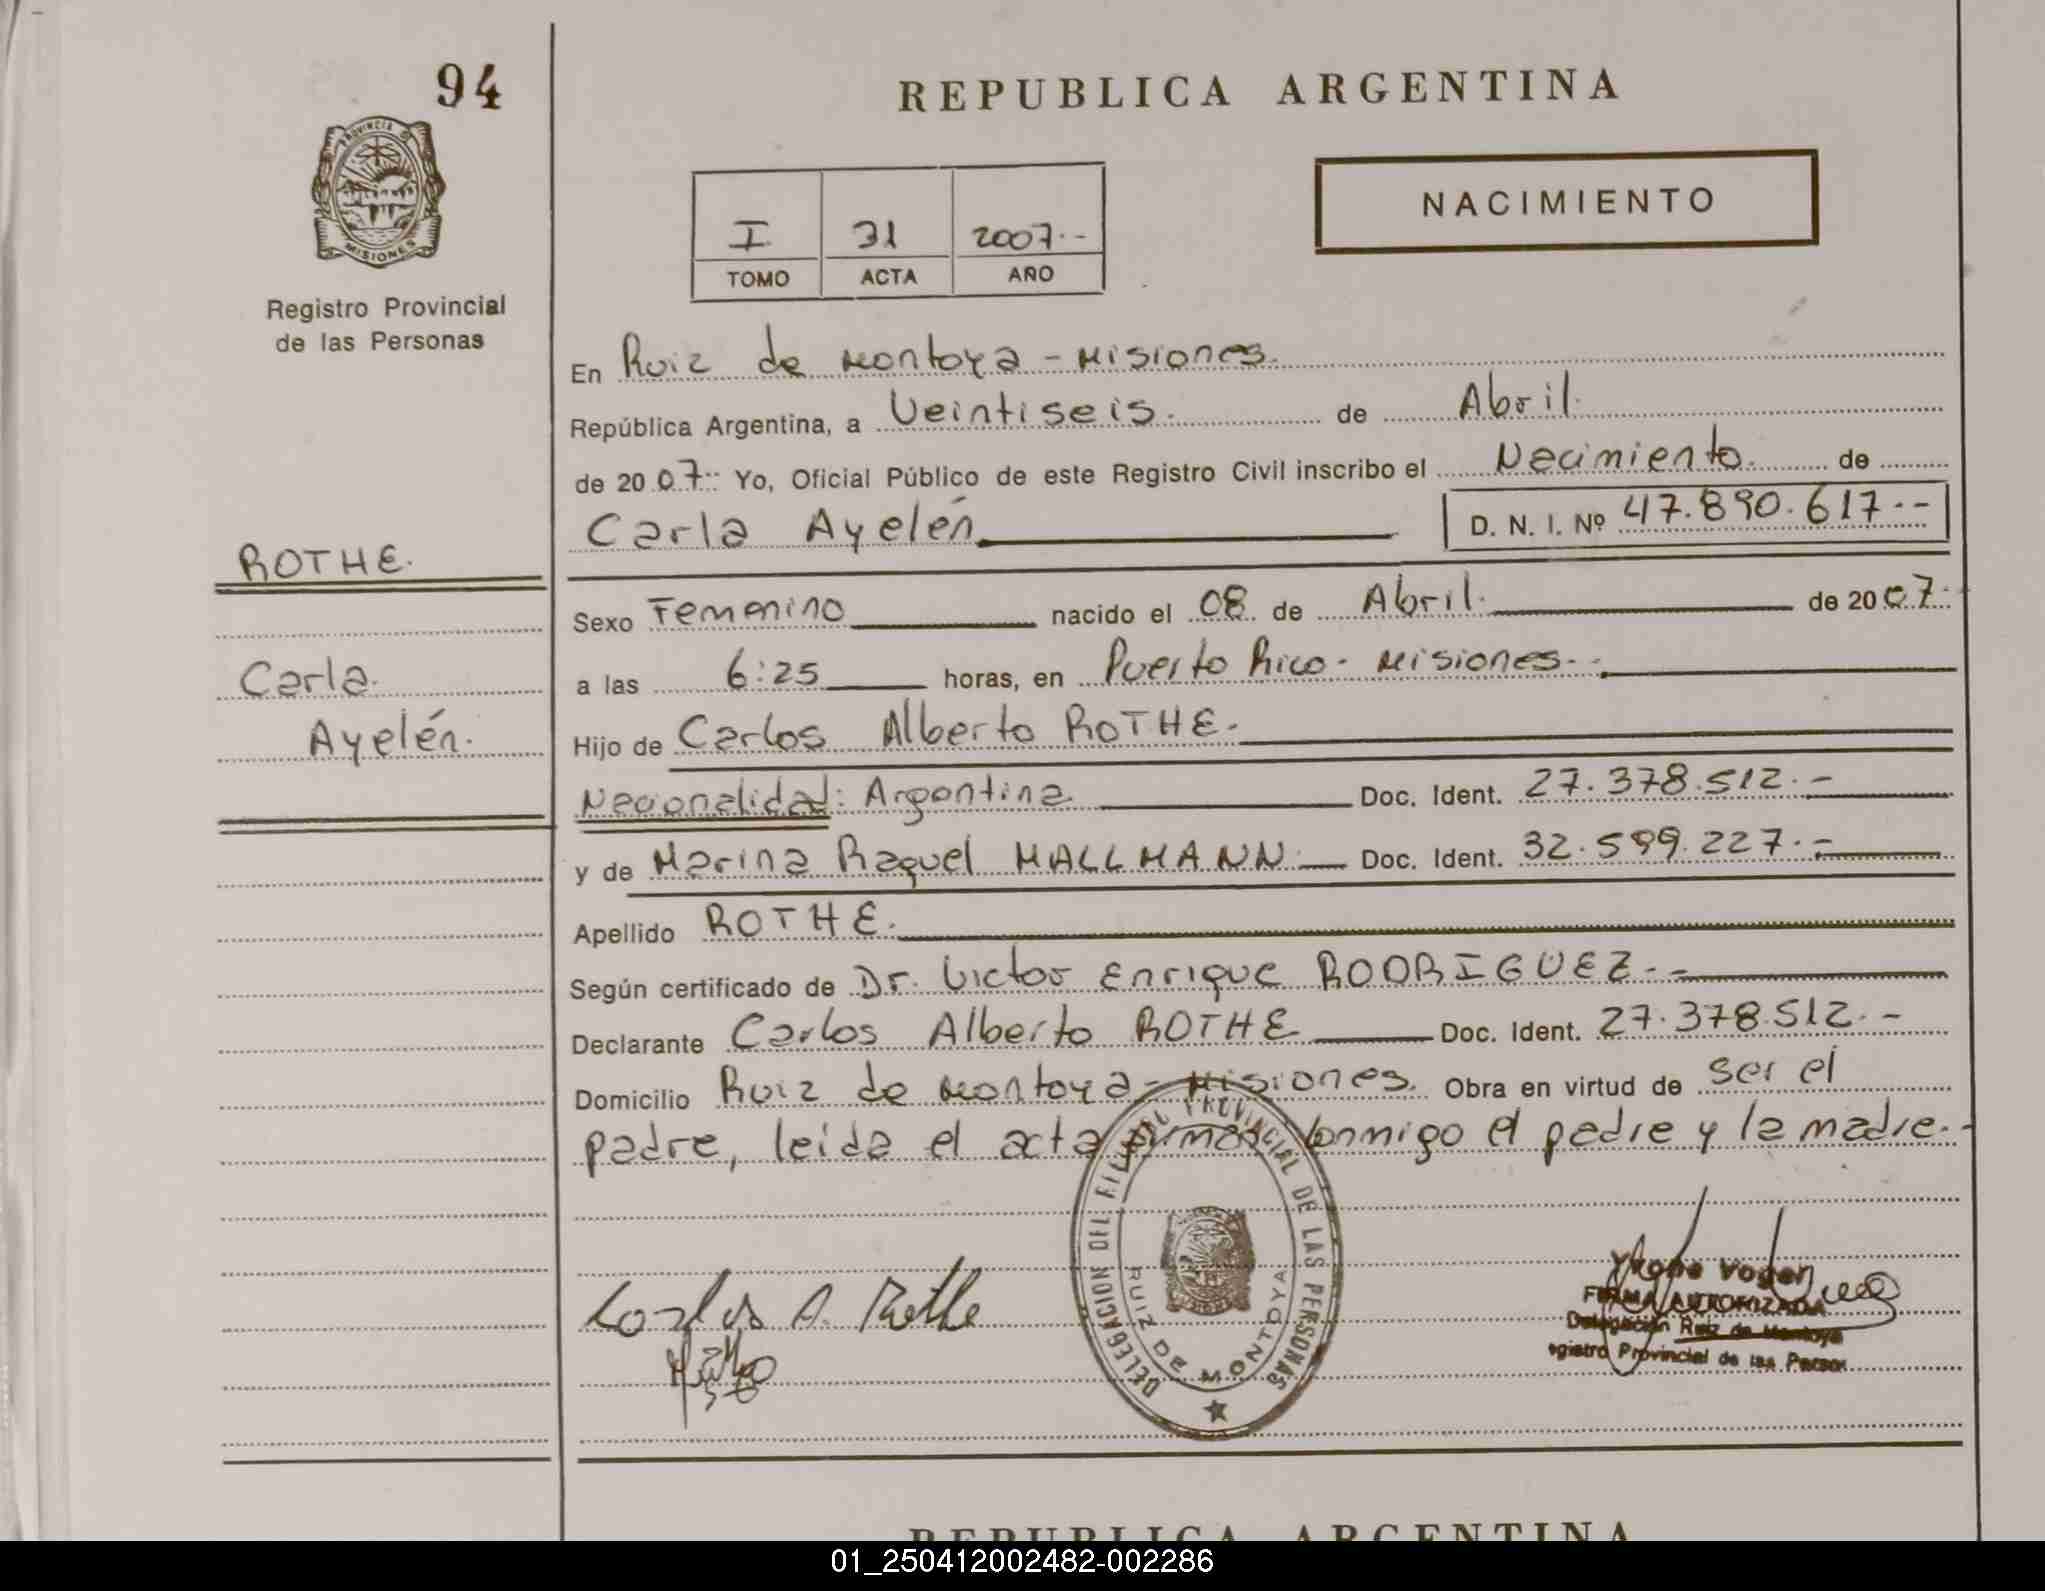 94
REPUBLICA ARGENTINA
PROVINCIA DE
MISIONES
NACIMIENTO
I 31 2007.-
TOMO ACTA AÑO
Registro Provincial
de las Personas
En Ruiz de Montoya - Misiones.
República Argentina, a Veintiseis. de Abril.
de 20 07.- Yo, Oficial Público de este Registro Civil inscribo el Nacimiento. de
Carla Ayelén D. N. I. Nº 47.890.617.--
ROTHE.
Sexo Femenino nacido el 08 de Abril. de 20 07.
Carla
a las 6:25 horas, en Puerto Rico - Misiones.-
Ayelén.
Hijo de Carlos Alberto ROTHE.
Nacionalidad: Argentina Doc. Ident. 27.378.512.-
y de Marina Raquel MALLMANN Doc. Ident. 32.599.227.-
Apellido ROTHE.
Según certificado de Dr. Victor Enrique RODRIGUEZ.-
Declarante Carlos Alberto ROTHE Doc. Ident. 27.378.512.-
Domicilio Ruiz de Montoya - Misiones. Obra en virtud de ser el
padre, leida el acta firman conmigo el padre y la madre.-
DELEGACION DEL REGISTRO PROVINCIAL DE LAS PERSONAS
RUIZ DE MONTOYA
Carlos A. Rothe
FIRMA AUTORIZADA
Delegación Ruiz de Montoya
egistro Provincial de las Person
REPUBLICA ARGENTINA
01_250412002482-002286